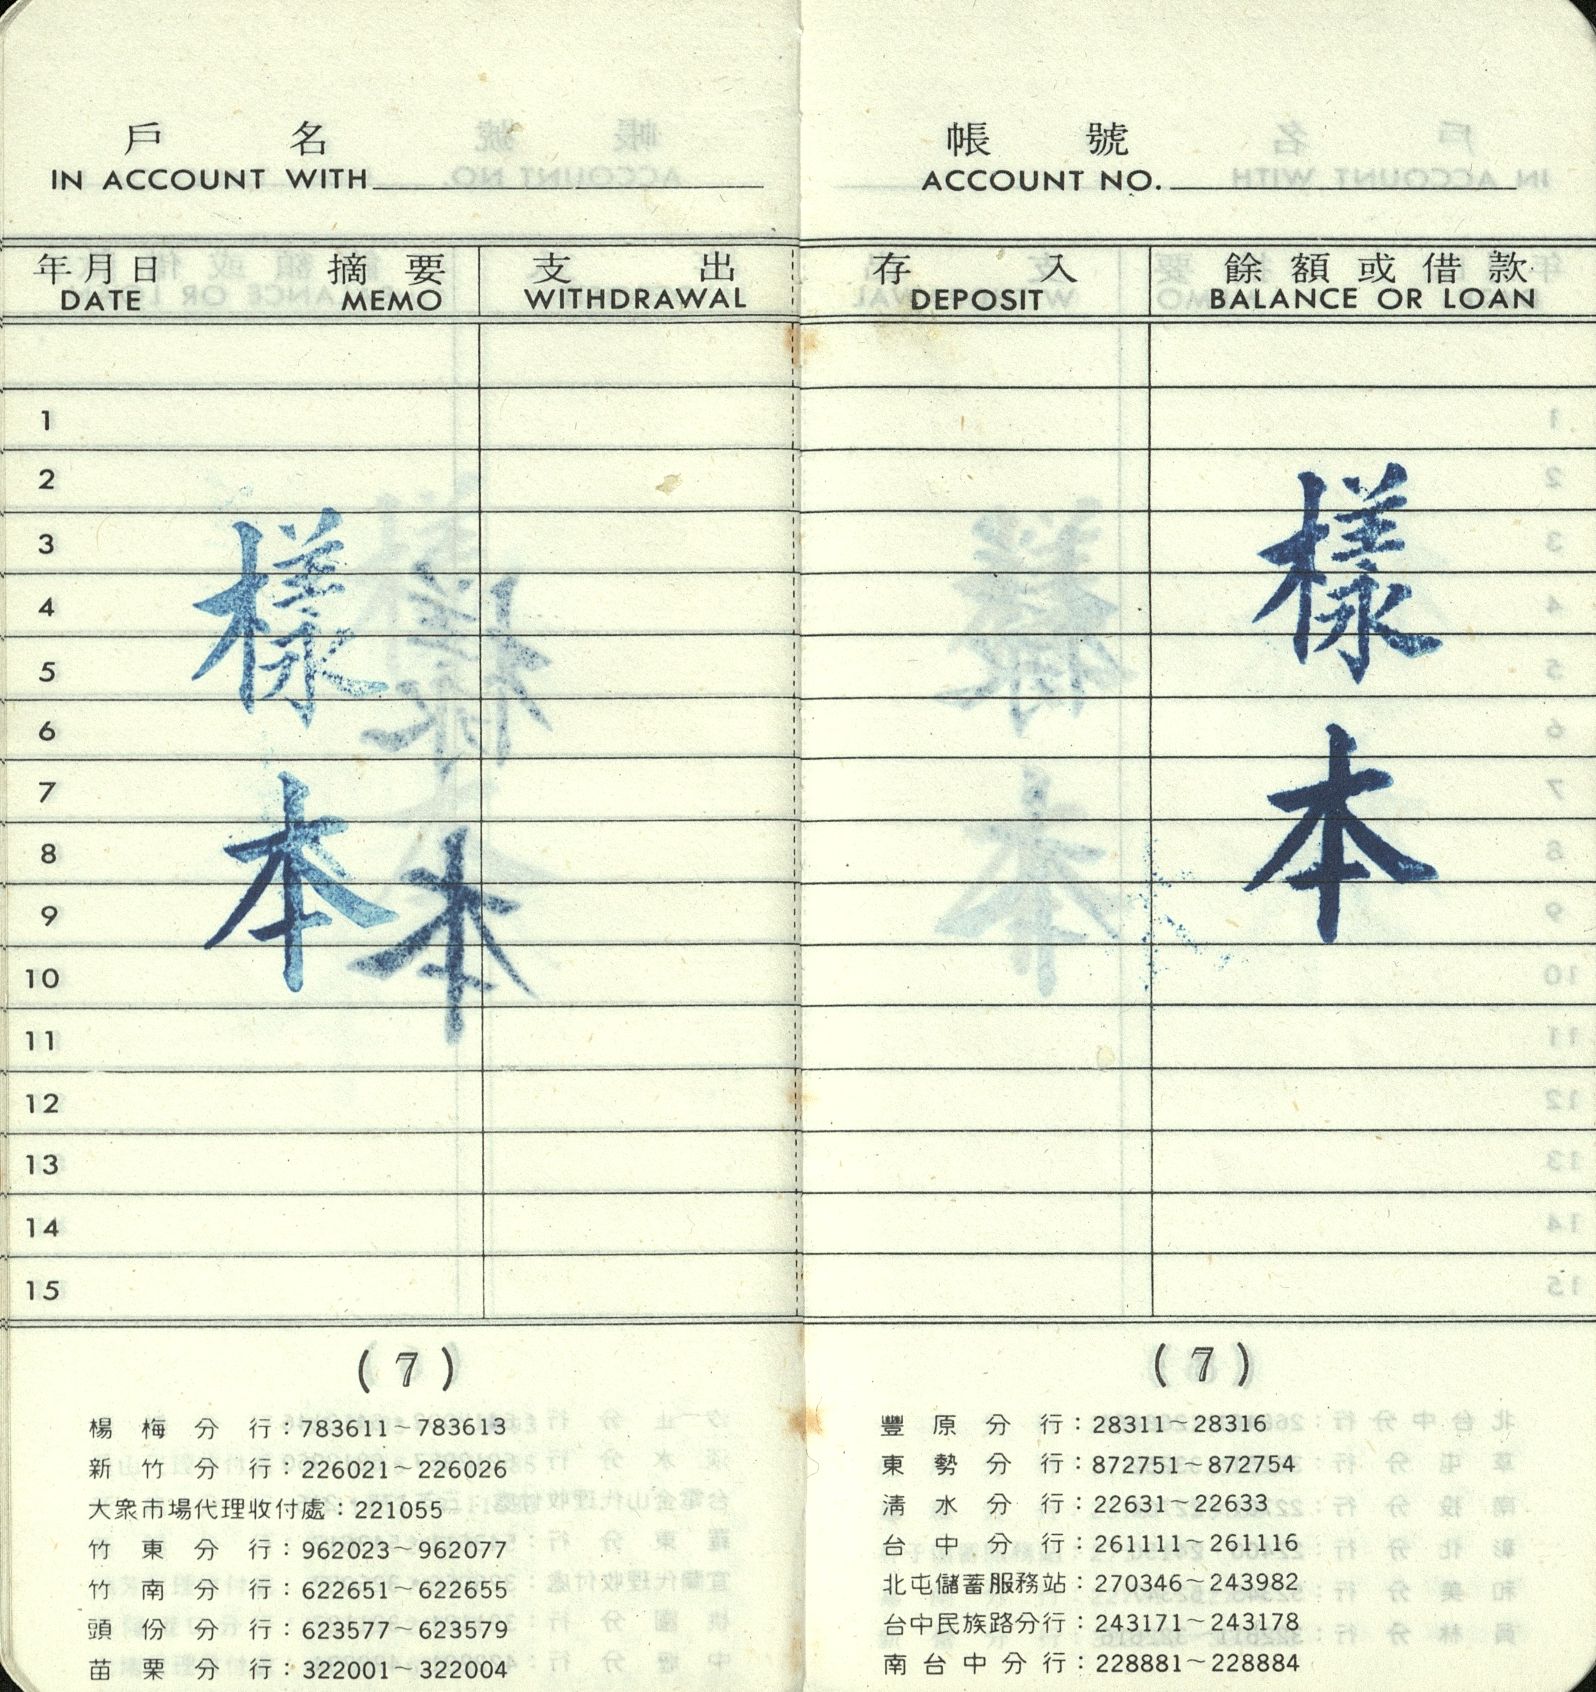 戶名
IN ACCOUNT WITH
年月日 摘要 支出
DATE MEMO WITHDRAWAL
1
2
3
4
5
6
7
8
9
10
11
12
13
14
15
樣本
樣本
(7)
楊梅分行：783611～783613
新竹分行：226021～226026
大衆市場代理收付處：221055
竹東分行：962023～962077
竹南分行：622651～622655
頭份分行：623577～623579
苗栗分行：322001～322004
帳號
ACCOUNT NO.
存入 餘額或借款
DEPOSIT BALANCE OR LOAN
樣本
(7)
豐原分行：28311～28316
東勢分行：872751～872754
淸水分行：22631～22633
台中分行：261111～261116
北屯儲蓄服務站：270346～243982
台中民族路分行：243171～243178
南台中分行：228881～228884